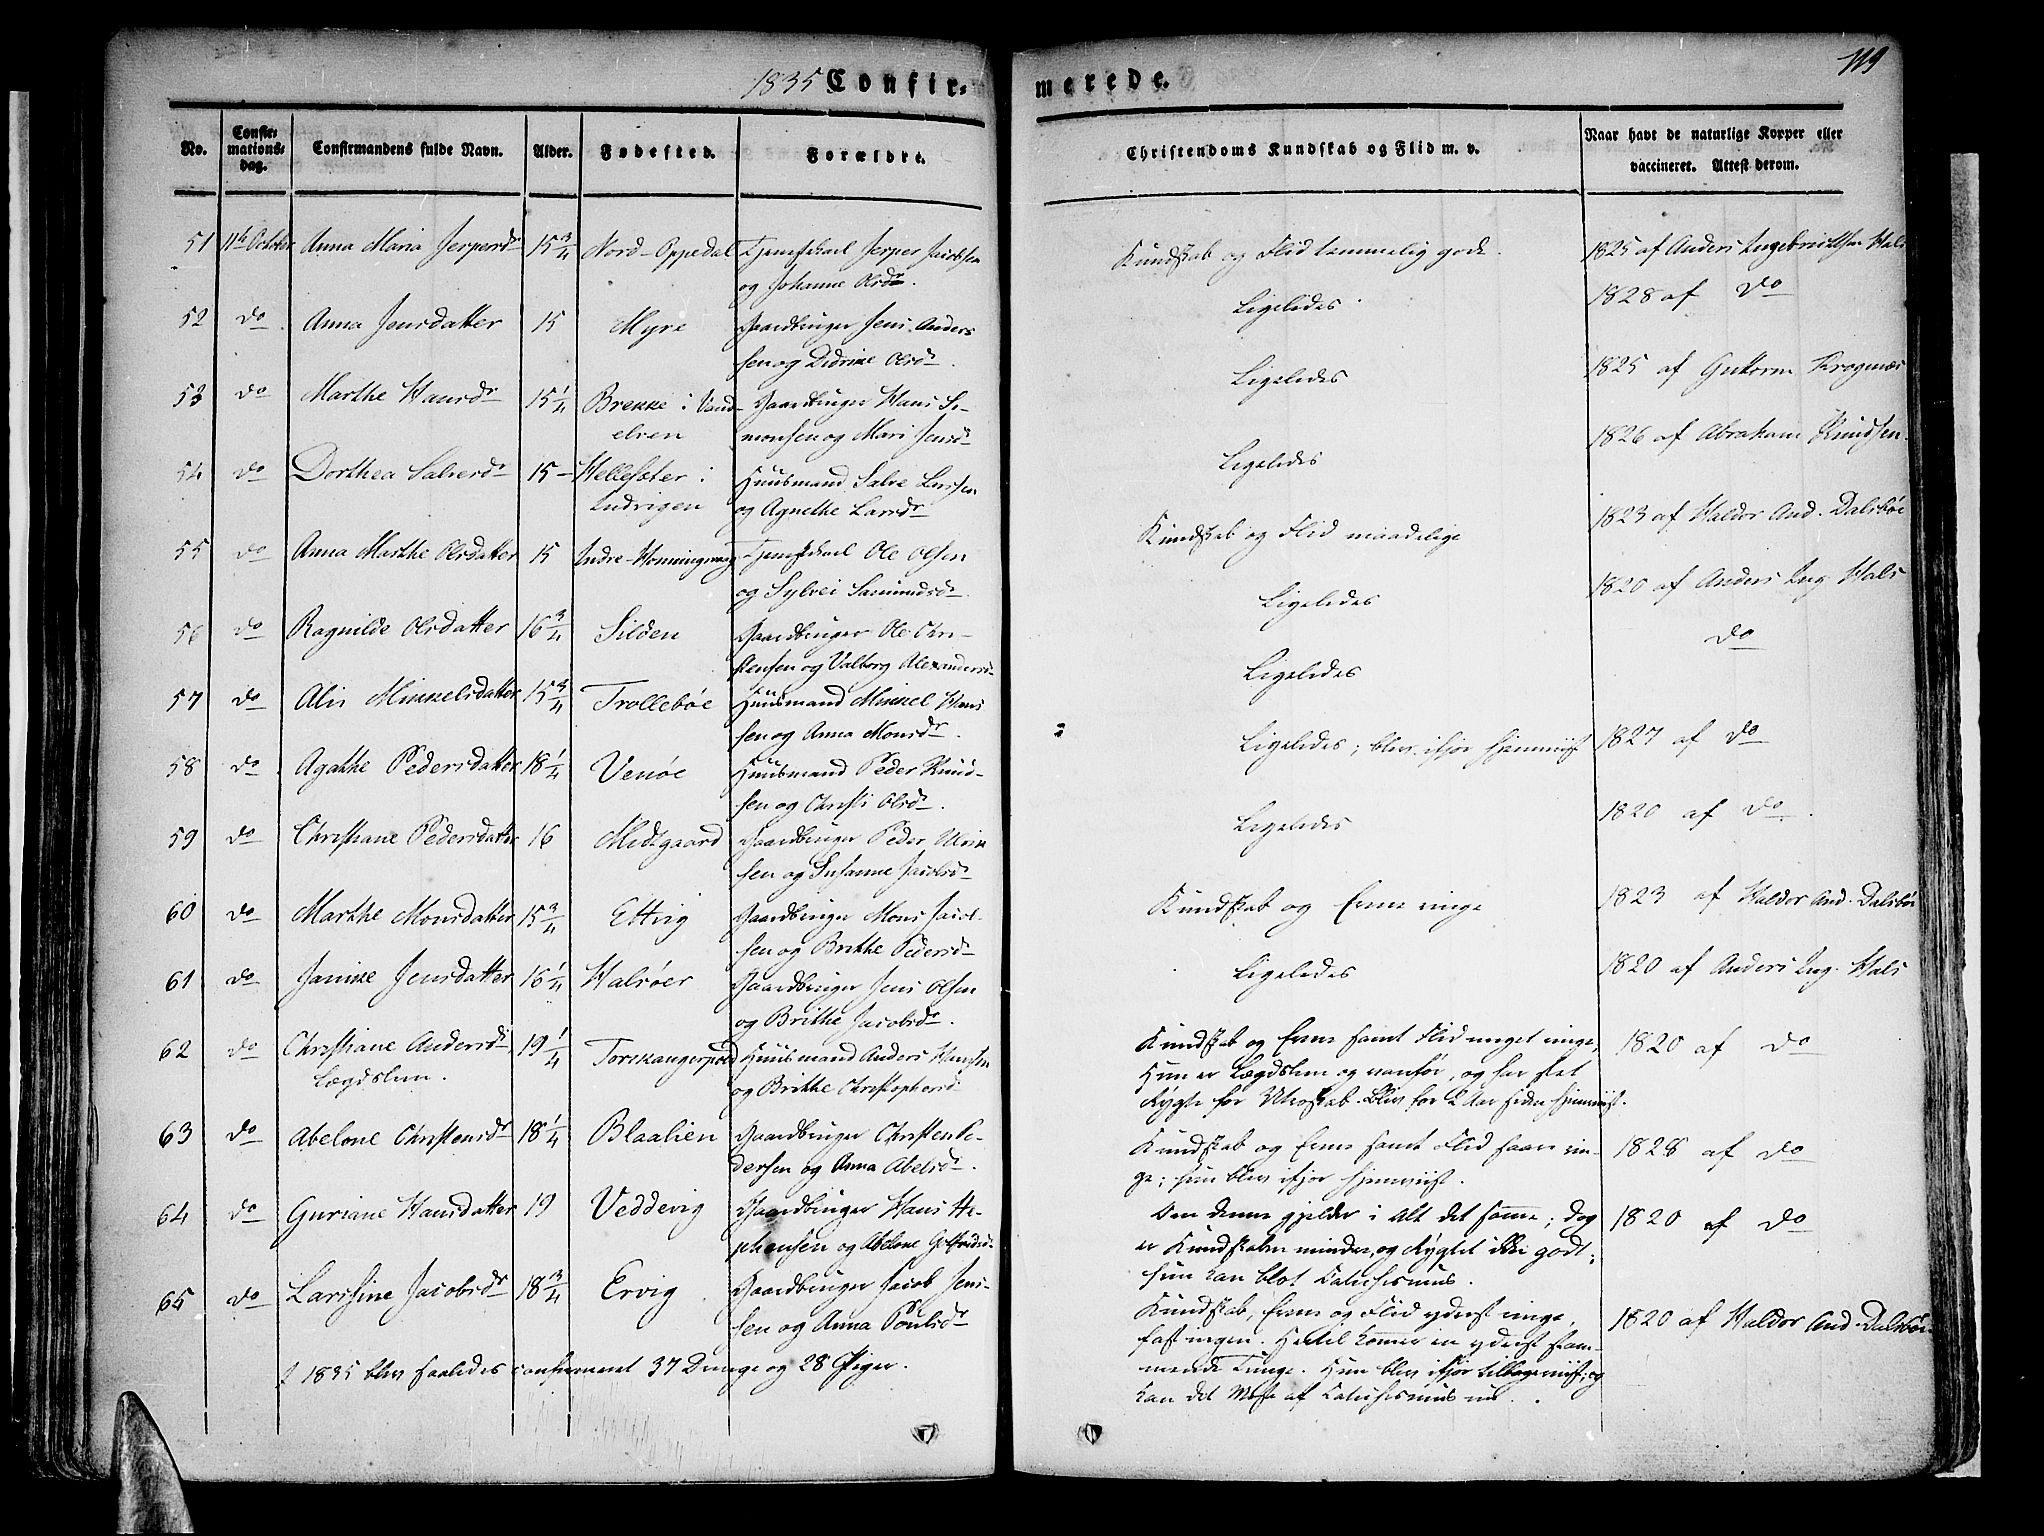 1835 Confir-
merede.
119
No.
Confir-
mations-
dag.
Confirmandens fulde Navn.
Alder.
Fødested.
Forældre.
Christendoms Kundskab og Flid m. v.
Naar havt de naturlige Kopper eller
vaccineret. Attest derom.
51 11te October Anna Maria Jespersdr 15 3/4 Nord-Oppedal Tjenestkarl Jesper Jacobsen
og Johanne Olsdr.
Kundskab og Flid temmelig gode.
1825 af Anders Ingebrichtsen Hals
52 do Anna Jensdatter 15 Myre Gaardbruger Jens Anders
sen og Didrikke Olsdr.
Ligeledes
1828 af do
53 do Marthe Hansdr 15 1/4 Brekke i Vand- Gaardbruger Hans Si-
elven monsen og Mari Jensdr
Ligeledes
1825 af Guttorm Krognæs
54 do Dorthea Salvesdr 15 - Hellesæter i Huusmand Salve Larsen
Indvigen og Agnethe Larsdr
Ligeledes
1826 af Abraham Knudsen.
55 do Anna Marthe Olsdatter 15 Indre-Honningsvaag Tjenestkarl Ole Olsen
og Sylvei Samundsdr.
Kundskab og Flid maadelige
1823 af Haldor And. Dalsbøe
56 do Ragnilde Olsdatter 16 3/4 Silden Gaardbruger Ole Chri-
stensen og Valborg Alexandersdr
Ligeledes
1820 af Anders Ing. Hals
57 do Alis Mikkelsdatter 15 3/4 Trollebøe Huusmand Mikkel Hans
sen og Anna Monsdr.
Ligeledes
do
58 do Agathe Pedersdatter 18 1/4 Venøe Huusmand Peder Knud-
sen og Christi Olsdr.
Ligeledes; blev ifjor hjemviist
1827 af do
59 do Christiane Pedersdatter 16 Midtgaard Gaardbruger Peder
sen og Susanne Jacobsdr
Ligeledes
1820 af do.
60 do Marthe Monsdatter 15 3/4 Ettvig Gaardbruger Mons Jacob-
sen og Brithe Pedersdr
Kundskab og Evne ringe
1823 af Haldor And. Dalsbøe
61 do Jannike Jensdatter 16 1/4 Halsøer Gaardbruger Jens Olsen
og Brithe Jacobsdr.
Ligeledes
1820 af Anders Ing. Hals
62 do Christiane Andersdr, 19 1/4 Torskangerpold Huusmand Anders Hansen
Lægdslem. og Brithe Christophersdr
Kundskab og Evne samt Flid meget ringe,
Hun er Lægdslem og vanfør, og har slet
Rygte for Utroskab. Blev for 2 Aar siden hjemviist.
1820 af do
63 do Abelone Christensdr 18 1/4 Blaalien Gaardbruger Christen Pe-
dersen og Anna Abelsdr.
Kundskab og Evne samt Flid saare rin-
ge; hun blev ifjor hjemviist.
1828 af do
64 do Guriane Hansdatter 19 Veddevig Gaardbruger Hans Ste-
phensen og Abelone
Om denne gjelder i Alt det samme; dog
er Kundskaben mindre, og Rygtet ikke godt;
hun kan blot Catechismus.
1820 af do
65 do Larssine Jacobsdr 18 3/4 Ervig Gaardbruger Jacob Jens-
sen og Anna Poulsdr
Kundskab, Evne og Flid yderst ringe,
fast ingen. Hertil kommer en yderst stam-
mende Tunge. Hun blev ifjor tilbageviist; og
kan det Meste af Catechismus nu.
1820 af Haldor And. Dalsbøe
I 1835 blev saaledes confirmeret 37 Drenge og 28 Piger.